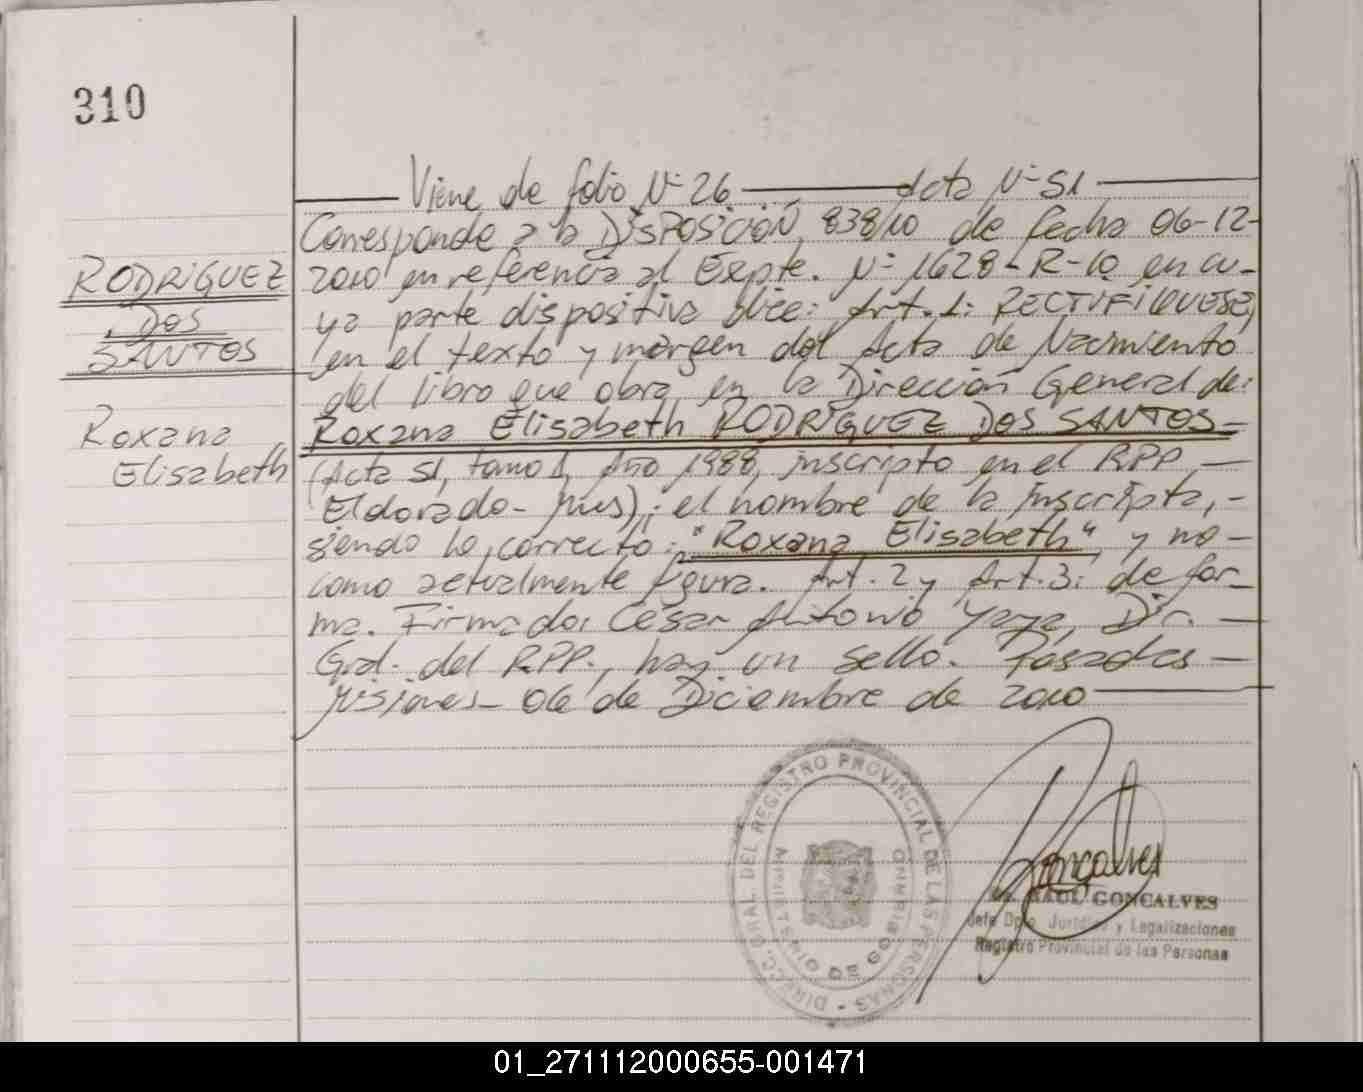 310
Viene de folio Nº 26 — Acta Nº 51
Corresponde a la DISPOSICIÓN 838/10 de fecha 06-12-
2010 en referencia al Expte. Nº 1628-R-10 en cu-
ya parte dispositiva dice: Art. 1: RECTIFIQUESE,
en el texto y margen del Acta de Nacimiento
del libro que obra en la Dirección General de:
Roxana Elisabeth RODRÍGUEZ DOS SANTOS-
(Acta 51, tomo 1, Año 1988, inscripto en el RPP, —
Eldorado- Mnes); el nombre de la inscripta, -
siendo lo correcto: "Roxana Elisabeth" y no -
como actualmente figura. Art. 2 y Art. 3: de for-
ma. Firmado: César Antonio Yaya, Dir. —
Gral. del RPP., hay un sello. Posadas -
Misiones- 06 de Diciembre de 2010
RODRIGUEZ
DOS
SANTOS
Roxana
Elisabeth
DIRECC. GRAL. DEL REGISTRO PROVINCIAL DE LAS PERSONAS -
MINISTERIO DE GOBIERNO
Goncalves
RAUL GONCALVES
Jefe Dpto. Jurídico y Legalizaciones
Registro Provincial de las Personas
01_271112000655-001471